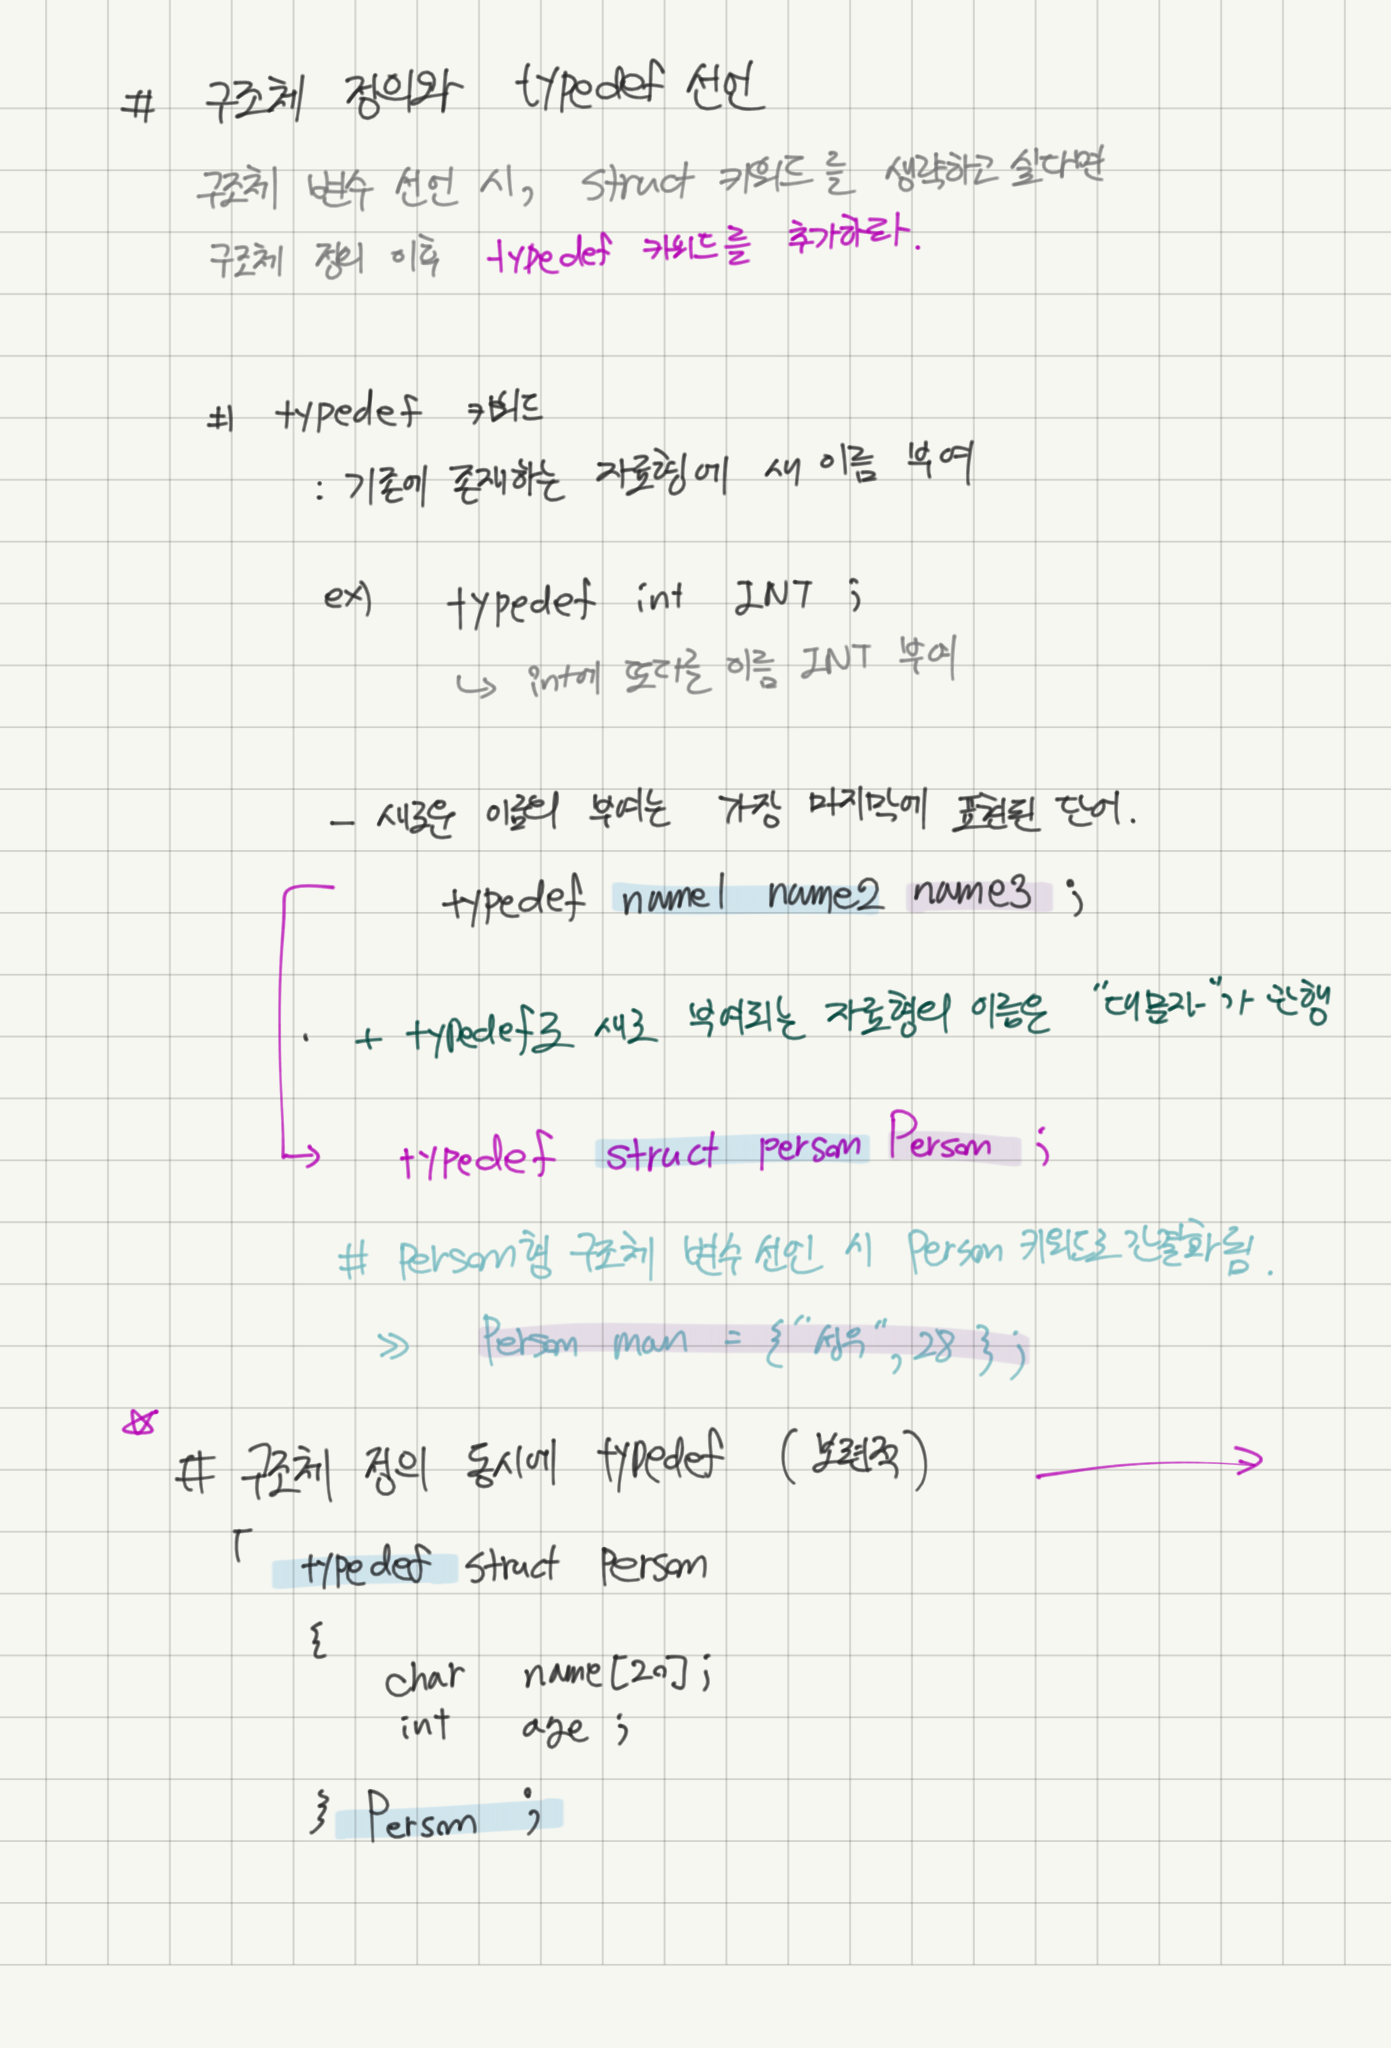 # 구조체 정의와 typedef 선언
구조체 변수 선언 시, struct 키워드를 생략하고 싶다면
구조체 정의 이후 typedef 키워드를 추가하라.
#1 typedef 키워드
: 기존에 존재하는 자료형에 새 이름 부여
ex) typedef int INT ;
↳ int에 또다른 이름 INT 부여
- 새로운 이름의 부여는 가장 마지막에 표현된 단어.
typedef name1 name2 name3 ;
+ typedef로 새로 부여되는 자료형의 이름은 "대문자"가 관행
typedef struct person Person ;
# Person형 구조체 변수 선언 시 Person 키워드로 간결화됨.
» Person man = {"성우", 28 } ;
☆
# 구조체 정의 동시에 typedef (보편적) →
「 typedef struct Person
{
char name[20] ;
int age ;
} Person ;